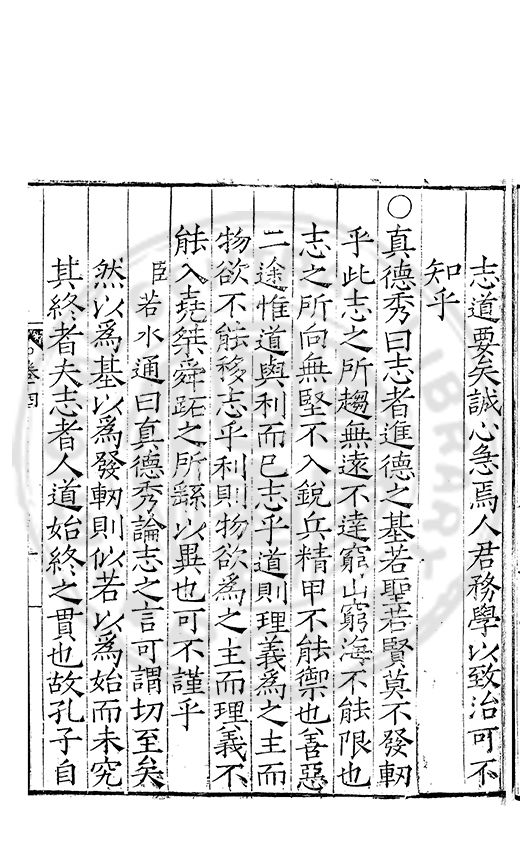 志道要矣誠心急焉人君務學以致治可不
知乎
○真德秀曰志者進德之基若聖若賢莫不發軔
乎此志之所趨無遠不達窮山窮海不能限也
志之所向無堅不入銳兵精甲不能禦也善惡
二途惟道與利而已志乎道則理義為之主而
物欲不能移志乎利則物欲為之主而理義不
能入堯桀舜跖之所繇以異也可不謹乎
臣若水通曰真德秀論志之言可謂切至矣
然以為基以為發軔則似若以為始而未究
其終者夫志者人道始終之貫也故孔子自
卷四